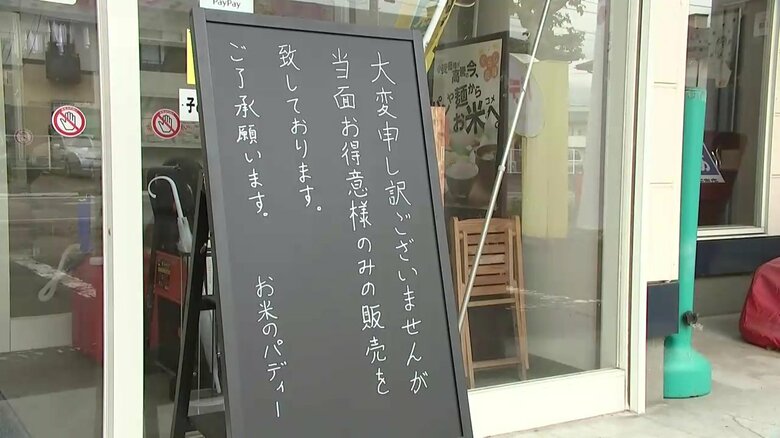 PayPay
大変申し訳ございませんが
当面お得意様のみの販売を
致しております。
ご了承願います。
お米のパディー
高騰の今、
麺から
お米へ。
コメ